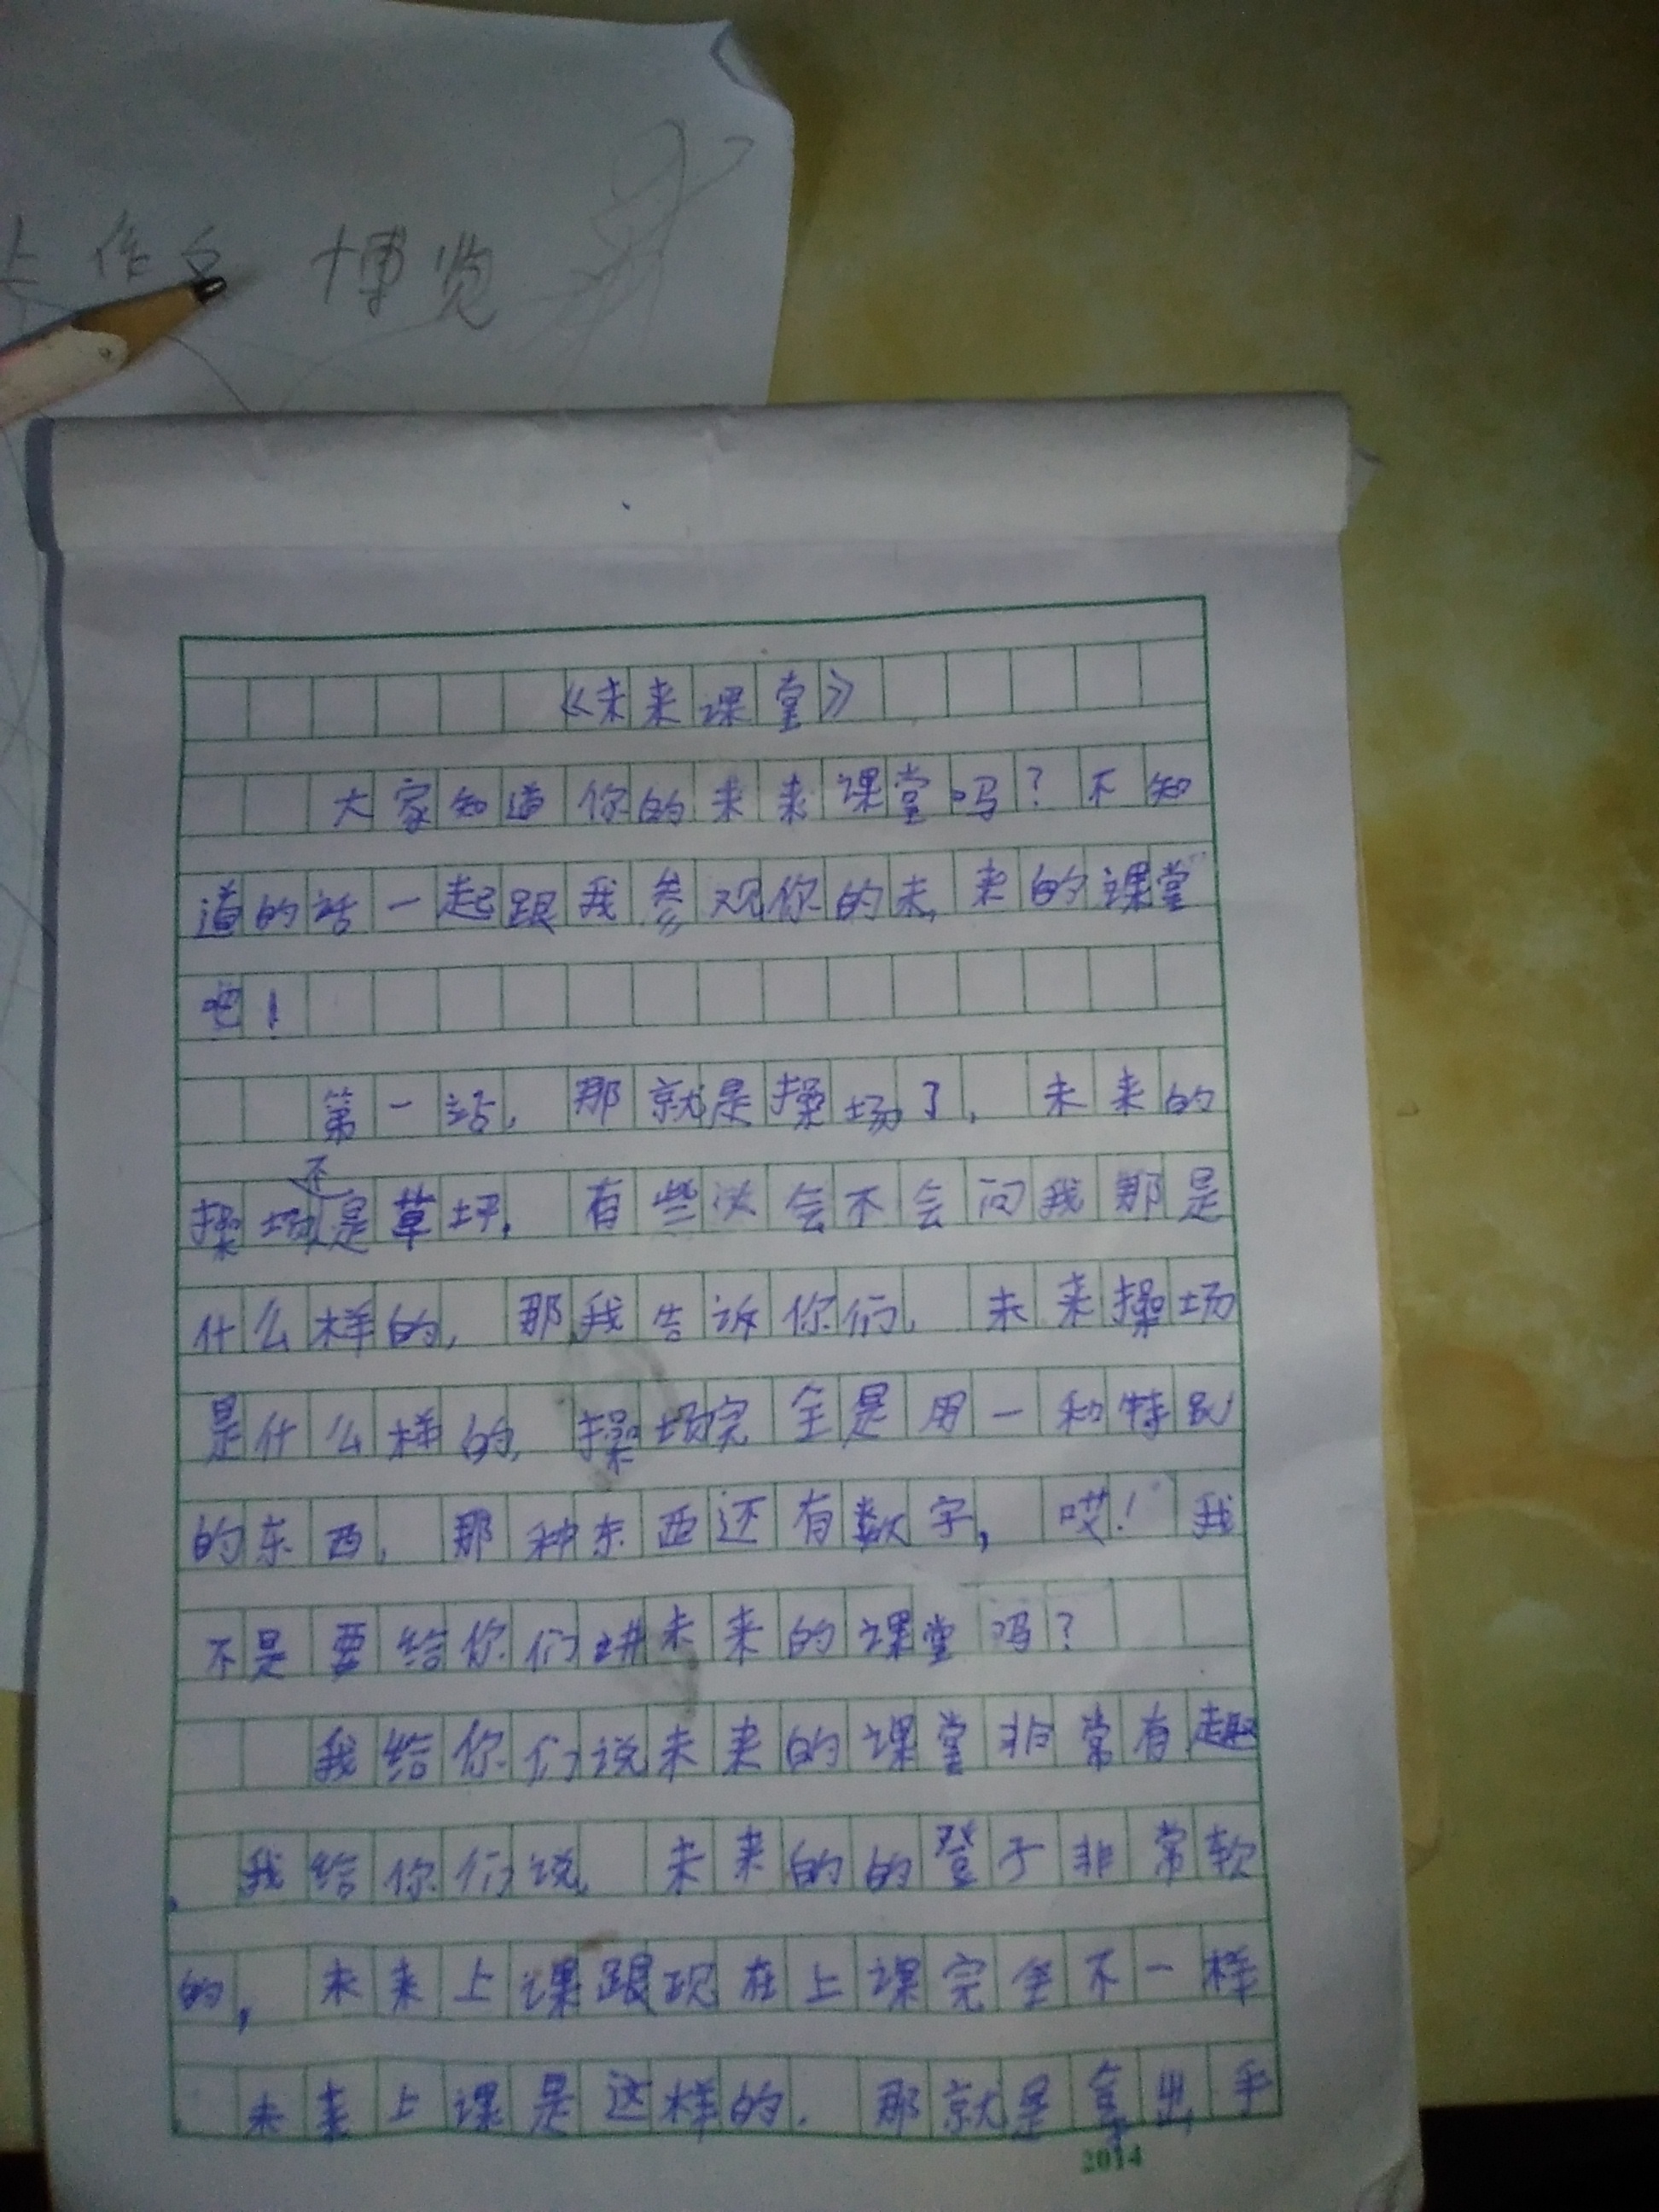 作 博览
《未来课堂》
大家知道你的未来课堂吗？不知
道的话一起跟我参观你的未来的课堂
吧！
第一站，那就是操场了，未来的
操场不是草坪，有些人会不会问我那是
什么样的，那我告诉你们，未来操场
是什么样的，操场完全是用一种特别
的东西，那种东西还有数字，哎！我
不是要给你们讲未来的课堂吗？
我给你们说未来的课堂非常有趣
，我给你们说，未来的的登子非常软
的，未来上课跟现在上课完全不一样
，未来上课是这样的，那就是拿出手
2014